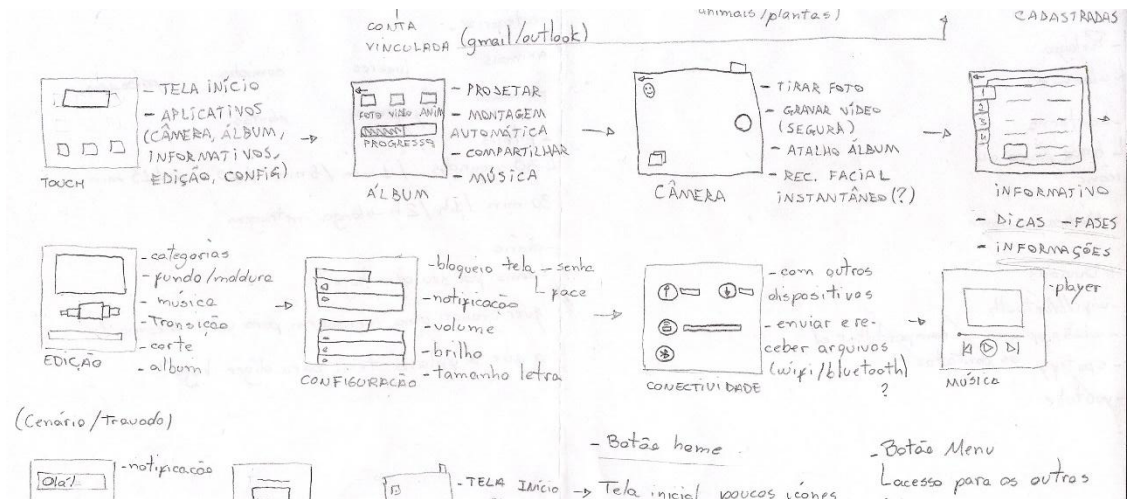 CONTA
VINCULADA (gmail/outlook)
animais/plantas)
CADASTRADAS
- TELA INÍCIO
- APLICATIVOS
(CÂMERA, ÁLBUM,
INFORMATIVOS,
EDIÇÃO, CONFIG)
TOUCH
FOTO VIDEO ANIM
PROGRESSO
ÁLBUM
- PROJETAR
- MONTAGEM
AUTOMÁTICA
- COMPARTILHAR
- MÚSICA
CÂMERA
- TIRAR FOTO
- GRAVAR VÍDEO
(SEGURA)
- ATALHO ÁLBUM
- REC. FACIAL
INSTANTÂNEO (?)
1
2
3
4
INFORMATIVO
- DICAS - FASES
- INFORMAÇÕES
EDIÇÃO
- categorias
- fundo/moldura
- música
- Transição
- corte
- album
CONFIGURACÃO
- bloqueio tela - senha
face
- notificação
- volume
- brilho
- tamanho letra
CONECTIVIDADE
- com outros
dispositivos
- enviar e re-
ceber arquivos
(wifi/bluetooth)
?
MÚSICA
- player
(Cenário/Travado)
Olá!
- notificação
- TELA INÍCIO
- Botão home
Tela inicial poucos ícones
- Botão Menu
acesso para os outros